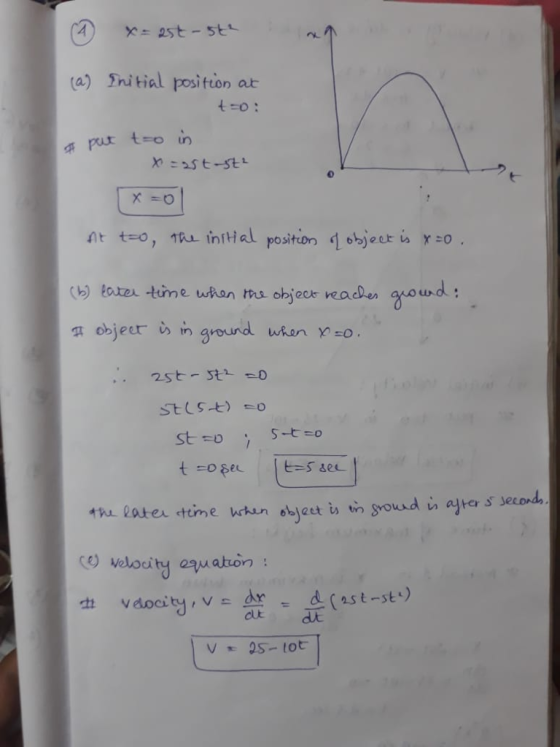 ① x = 25t - 5t²
x
o
t
(a) Initial position at
t=0 :
# put t=0 in
x = 25t-5t²
x = 0
At t=0, the initial position of object is x=0.
(b) later time when the object reaches ground :
# object is in ground when x=0.
∴ 25t - 5t² = 0
5t(5-t) = 0
5t = 0 ; 5-t=0
t = 0 sec t=5 sec
the later time when object is in ground is after 5 seconds.
(c) velocity equation :
# velocity, v = dx/dt = d/dt (25t-5t²)
v = 25-10t